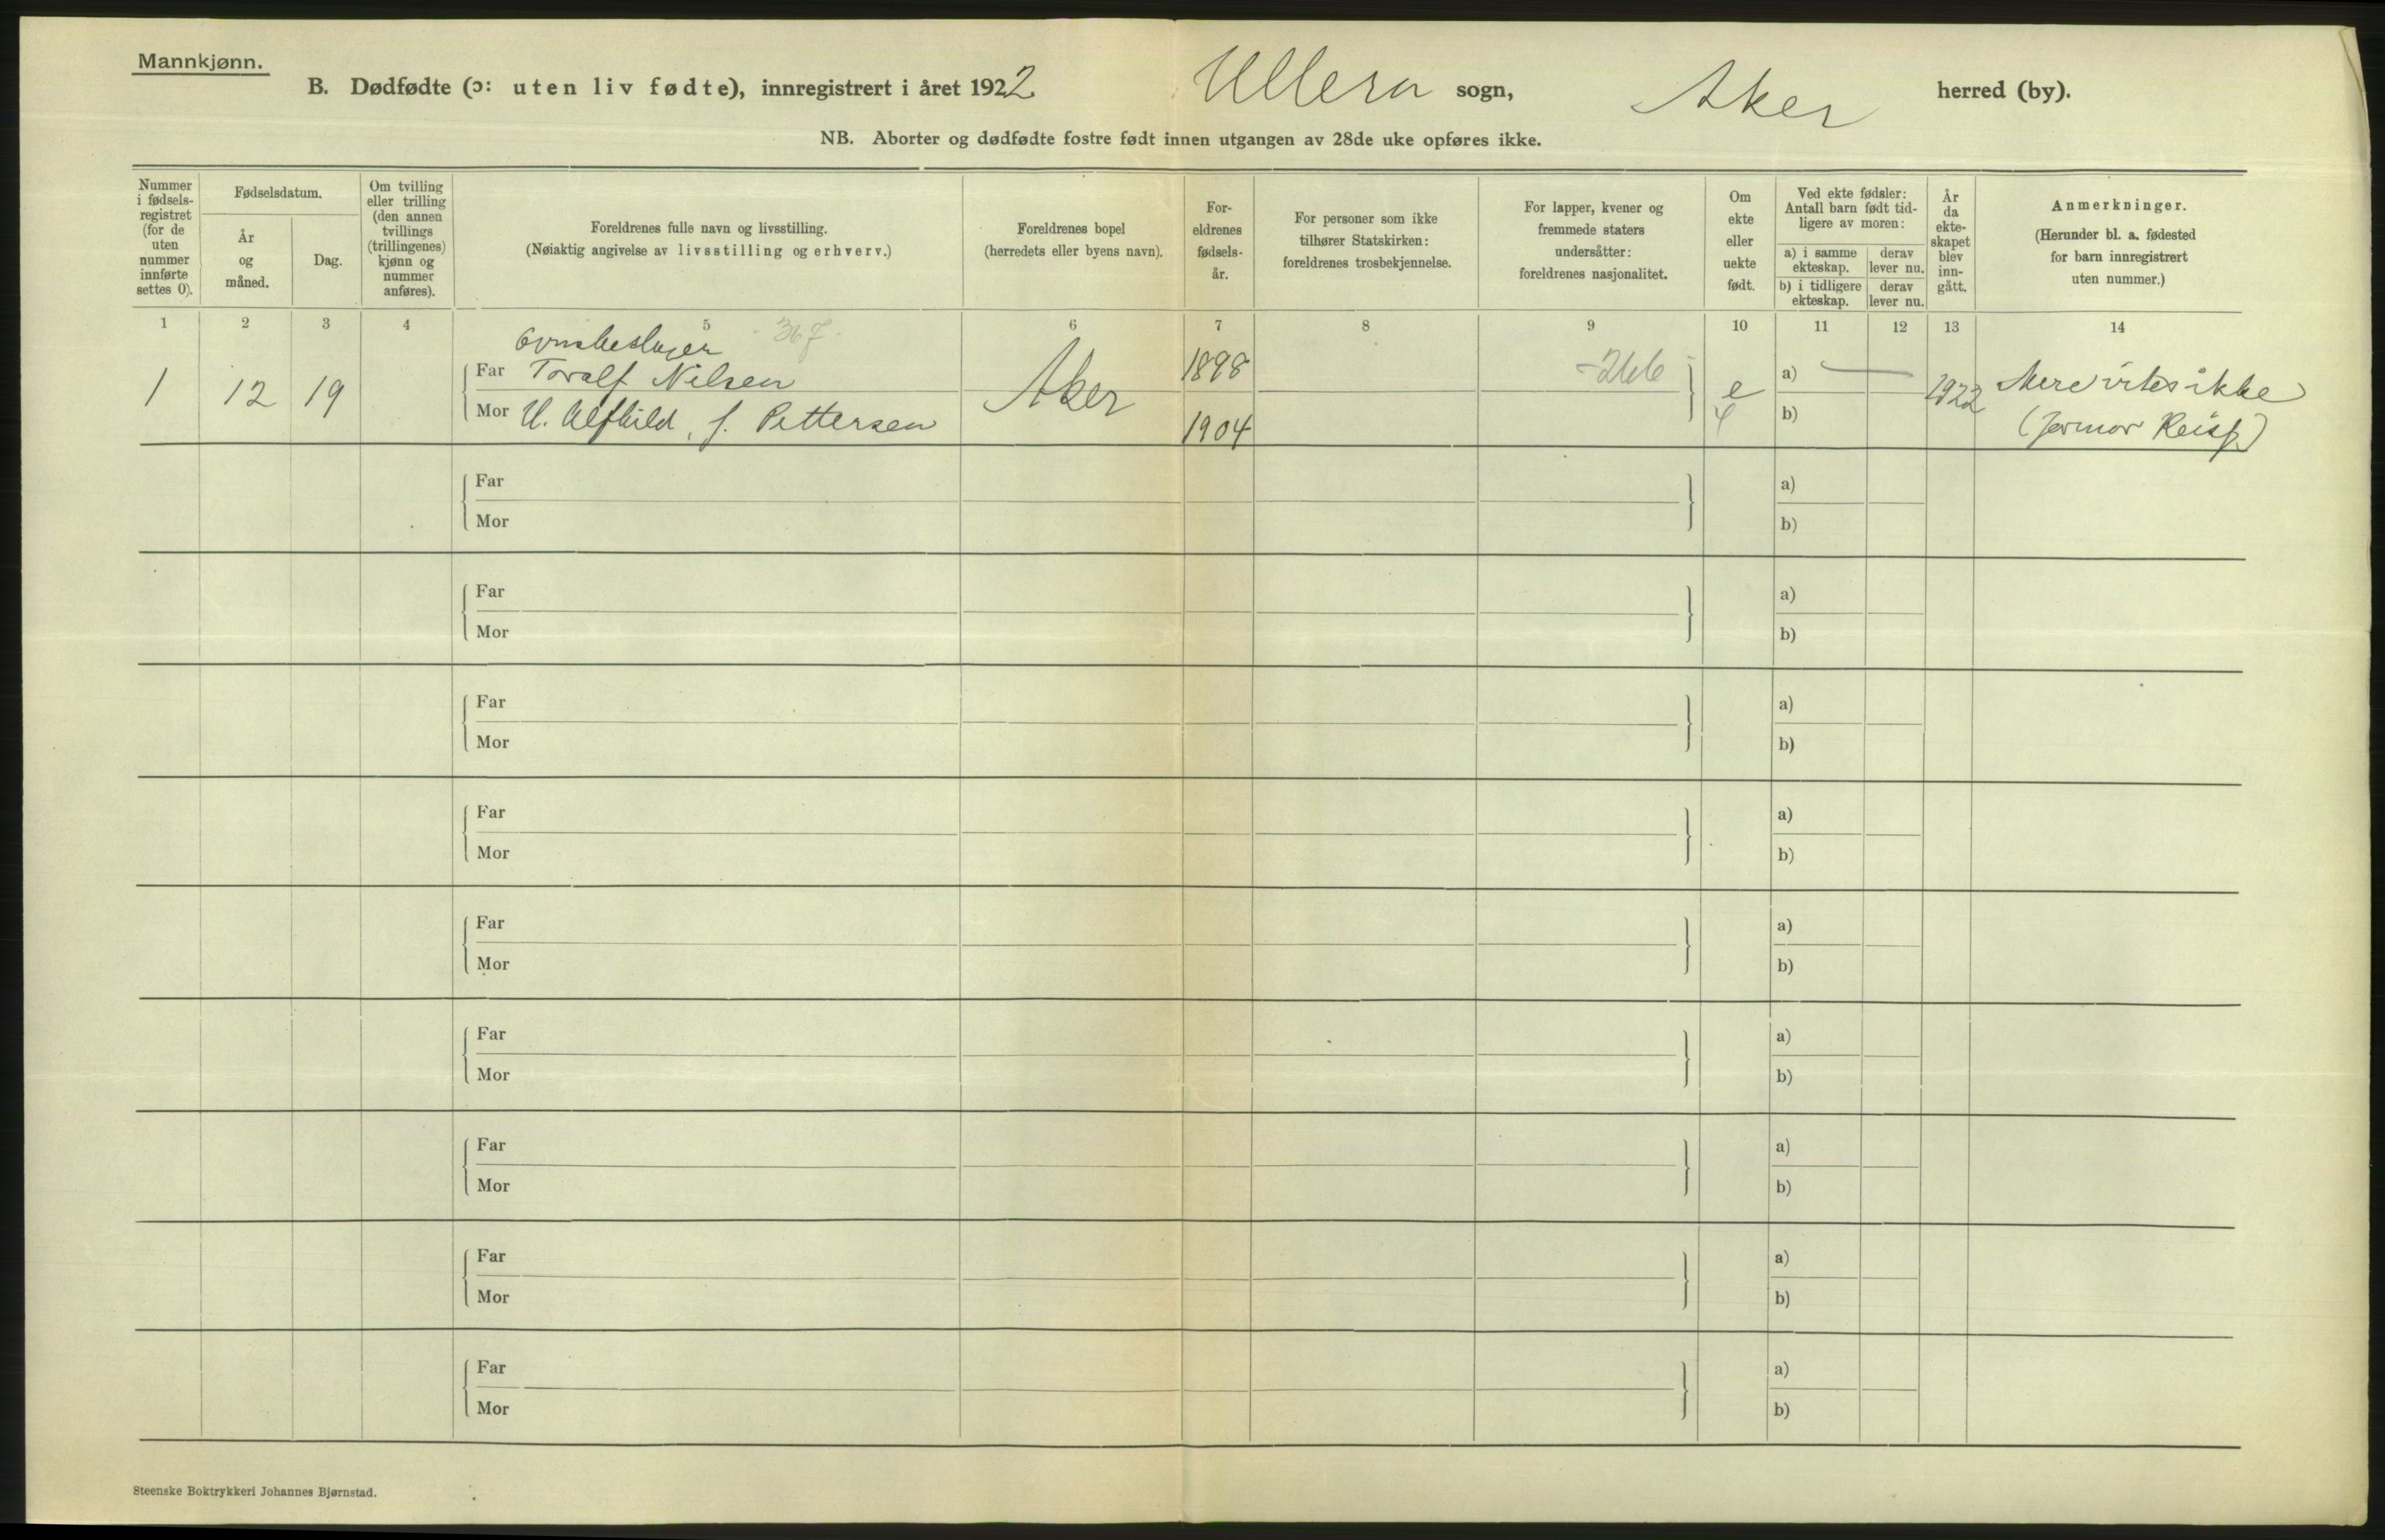 Mannkjønn.
B. Dødfødte (ɔ: uten liv fødte), innregistrert i året 1922 Ullern sogn, Aker herred (by).
NB. Aborter og dødfødte fostre født innen utgangen av 28de uke opføres ikke.
Nummer i fødsels-registret (for de uten nummer innførte settes 0).
Fødselsdatum.
År og måned.
Dag.
Om tvilling eller trilling (den annen tvillings (trillingenes) kjønn og nummer anføres).
Foreldrenes fulle navn og livsstilling.
(Nøiaktig angivelse av livsstilling og erhverv.)
Foreldrenes bopel
(herredets eller byens navn).
For-eldrenes fødsels-år.
For personer som ikke tilhører Statskirken: foreldrenes trosbekjennelse.
For lapper, kvener og fremmede staters undersåtter: foreldrenes nasjonalitet.
Om ekte eller uekte født.
Ved ekte fødsler: Antall barn født tid-ligere av moren:
a) i samme ekteskap.
derav lever nu.
b) i tidligere ekteskap.
derav lever nu.
År da ekte-skapet blev inn-gått.
Anmerkninger.
(Herunder bl. a. fødested for barn innregistrert uten nummer.)
1 2 3 4 5 6 7 8 9 10 11 12 13 14
367
1 12 19
Far Toralf Nilsen
Aker 1898 -266 e a) — 1922 Mere vites ikke
Mor U. Alfhild, f. Pettersen
1904 4 b) (Jormor Reisp)
Far a)
Mor b)
Far a)
Mor b)
Far a)
Mor b)
Far a)
Mor b)
Far a)
Mor b)
Far a)
Mor b)
Far a)
Mor b)
Far a)
Mor b)
Far a)
Mor b)
Steenske Boktrykkeri Johannes Bjørnstad.